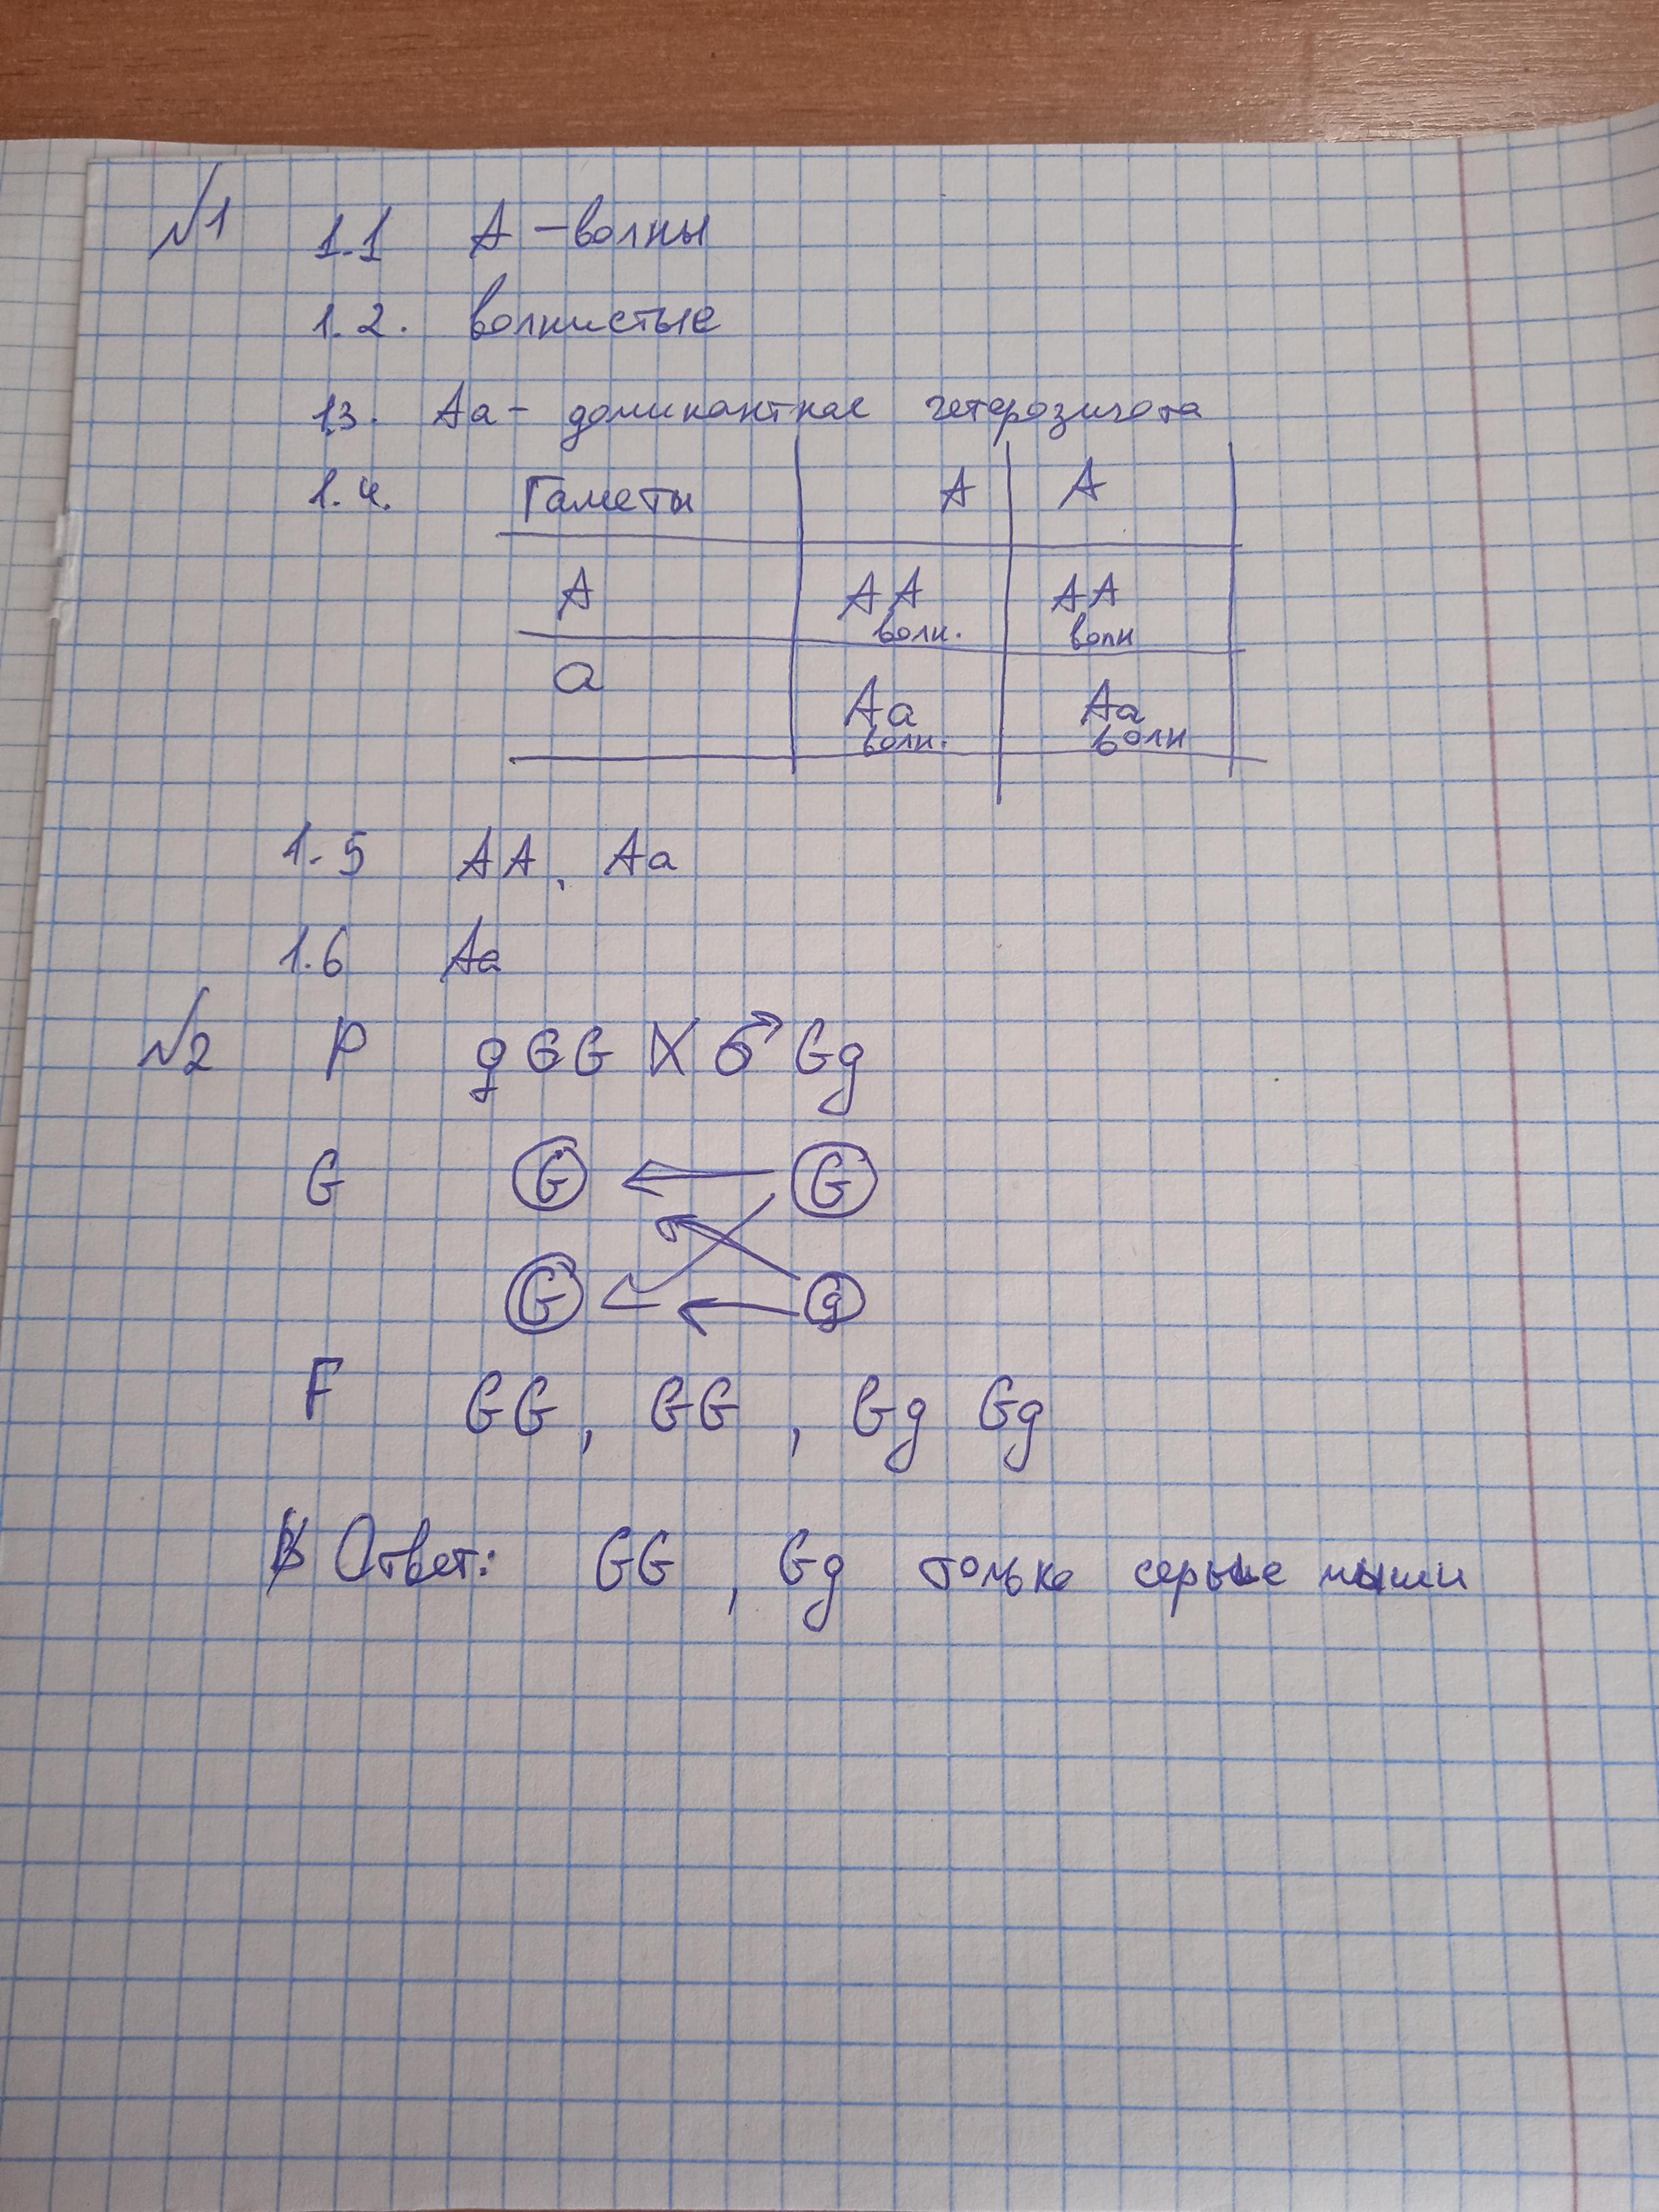 №1 1.1 А – волны
1.2. волнистые
1.3. Аа – доминантная гетерозигота
1.4. Гаметы А А
А АА АА
волн. волн
а Аа Аа
волн. волн
1.5 АА, Аа
1.6 Аа
№2 P ♀GG X ♂Gg
G G G
G g
F GG, GG, Gg Gg
Ответ: GG, Gg только серые мыши